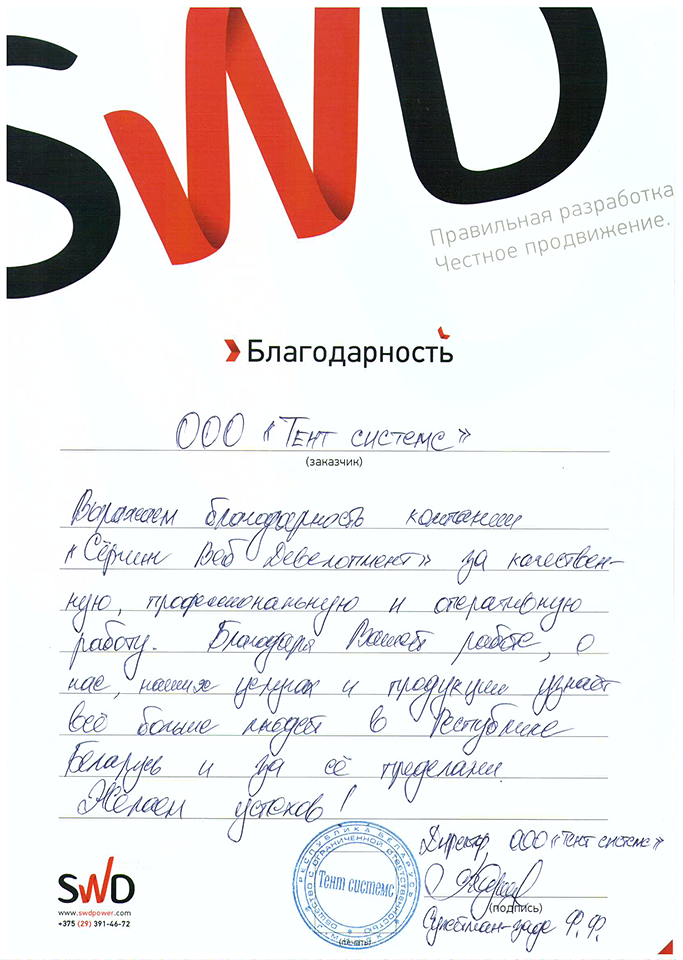 SWD
Правильная разработка
Честное продвижение.
Благодарность
ООО «Тент системс»
(заказчик)
Выражаем благодарность компании
«Сёрчин Веб Девелопмент» за качествен-
ную, профессиональную и оперативную
работу. Благодаря Вашей работе, о
нас, наших услугах и продукции узнаёт
всё больше людей в Республике
Беларусь и за её пределами.
Желаем успехов!
Директор ООО «Тент системс»
(подпись)
Ф.Ф.
РЕСПУБЛИКА БЕЛАРУСЬ
ОБЩЕСТВО С ОГРАНИЧЕННОЙ ОТВЕТСТВЕННОСТЬЮ
Тент системс
(печать)
SWD
www.swdpower.com
+375 (29) 391-46-72